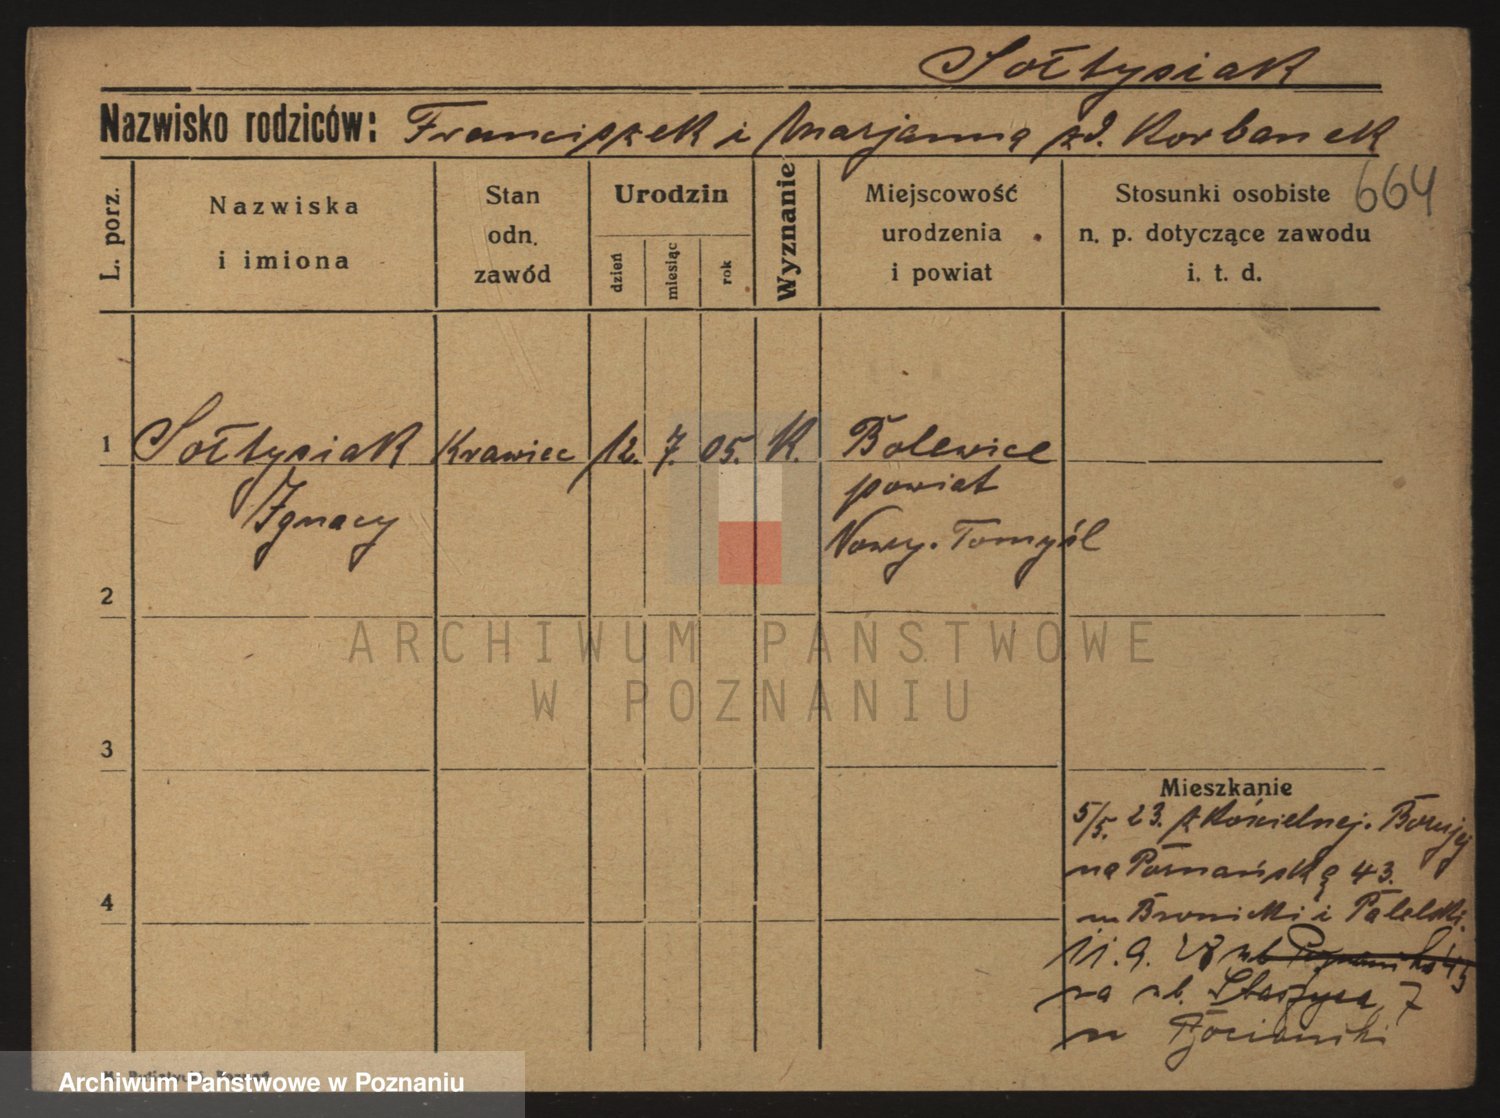 Sołtysiak
Nazwisko rodziców: Franciszek i Marjanną zd. Korbanek
664
L. porz.
Nazwiska
i imiona
Stan
odn.
zawód
Urodzin
dzień
miesiąc
rok
Wyznanie
Miejscowość
urodzenia
i powiat
Stosunki osobiste
n. p. dotyczące zawodu
i. t. d.
1 Sołtysiak Krawiec 12. 7. 05. K. Bolewice
powiat
Ignacy
Nowy-Tomyśl
2
ARCHIWUM PAŃSTWOWE
W POZNANIU
3
Mieszkanie
5/5. 23. z Kościelnej. Boruji
na Poznańską 43.
4
u Bronicki i
11. 9. 28 ul.
na ul. Staszyca 7
u
Archiwum Państwowe w Poznaniu